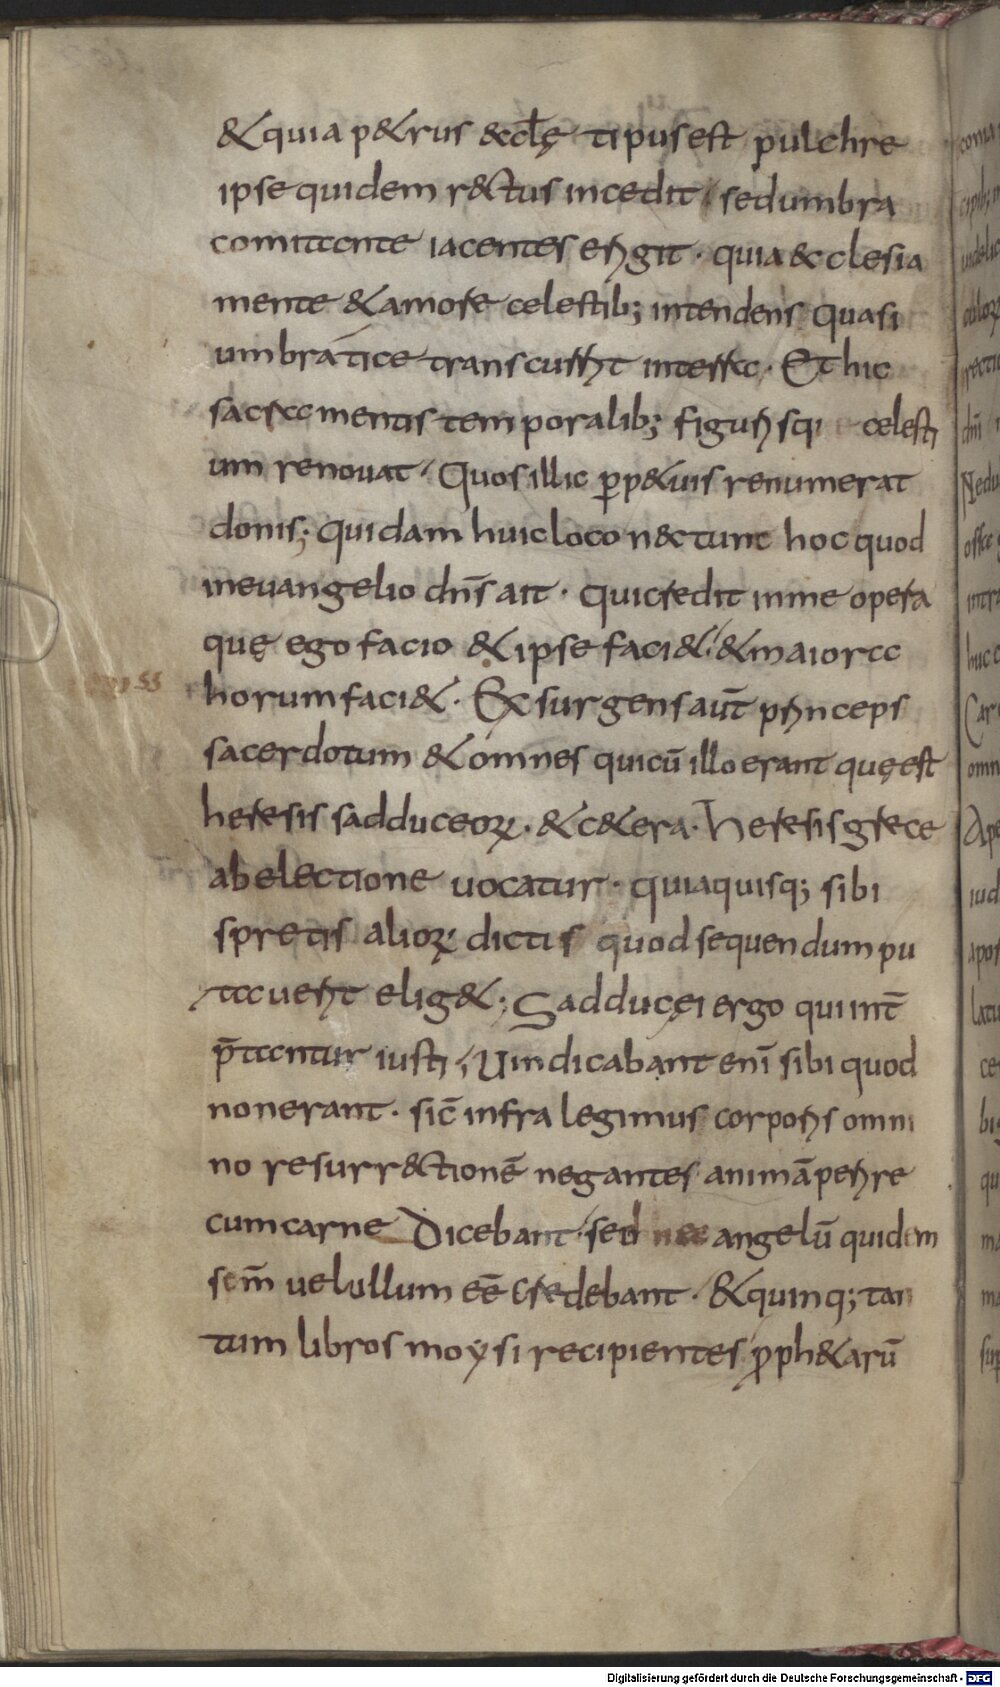 & quia p&rus &cłę tipus est pulchre
ipse quidem r&ctus incedit / sed umbra
comitante iacentes erigit · quia &cclesia
mente & amore celestib; intendens quasi
umbratice transcurrit interra · Et hic
sacramentis temporalib; figurisq; celesti
um renovat / Quos illic ꝑp&uis renumerat
donis; quidam huic loco nectunt hoc quod
in evangelio dn̄s ait · qui credit in me opera
quę ego facio & ipse faci&/ & maiora
horum faci& · Exsurgens aut̄ princeps
sacerdotum & omnes qui cū illo erant quę est
heresis sadduceoꝝ · & c&era · heresis grece
ab electione uocatur · quia quisq; sibi
spretis alioꝝ dictis quod sequendum pu
tauerit elig&; Sadducęi ergo qui int̄
p̄tantur iusti; Uindicabant enī sibi quod
non erant · sic̄ infra legimus corporis omni
no resurr&ctionē negantes animā perire
cum carne dicebant / sed nec angelū quidem
sem̄ uel ullum eē credebant · & quinq; tan
tum libros moysi recipientes ꝓph&arū
Digitalisierung gefördert durch die Deutsche Forschungsgemeinschaft - DFG